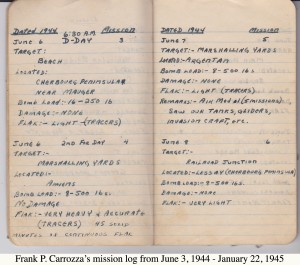 DATED 1944 6:30 AM MISSION
JUNE 6 D-DAY 3
TARGET:
BEACH
LOCATED:
CHERBOURG PENINSULAR
NEAR
BOMB LOAD:- 16-250 lb
DAMAGE:- NONE
FLAK:- LIGHT-(TRACERS)
JUNE 6 2ND FOR DAY 4
TARGET:-
MARSHALLING YARDS
LOCATED:-
AMIENS
BOMB LOAD:- 8-500 lbs.
NO DAMAGE
FLAK:- VERY HEAVY & ACCURATE
(TRACERS) 45 SOLID
MINUTES OF CONTINUOUS FLAK
DATED 1944 MISSION
JUNE 7 5
TARGET:- MARSHALLING YARDS
ARGENTAN
BOMB LOAD:- 8-500 lbs
DAMAGE:- NONE
FLAK:- LIGHT (TRACERS)
REMARKS:- AIR MEDAL (5 MISSIONS)
SAW OUR TANKS, GLIDERS,
INVASION CRAFT, ETC.
JUNE 8 6
TARGET:-
RAILROAD JUNCTION
LOCATED:- LESSAY (CHERBOURG
BOMB LOAD:- 8-500 lbs.
DAMAGE:- NONE
FLAK:- VERY LIGHT
Frank P. Carrozza's mission log from June 3, 1944 - January 22, 1945